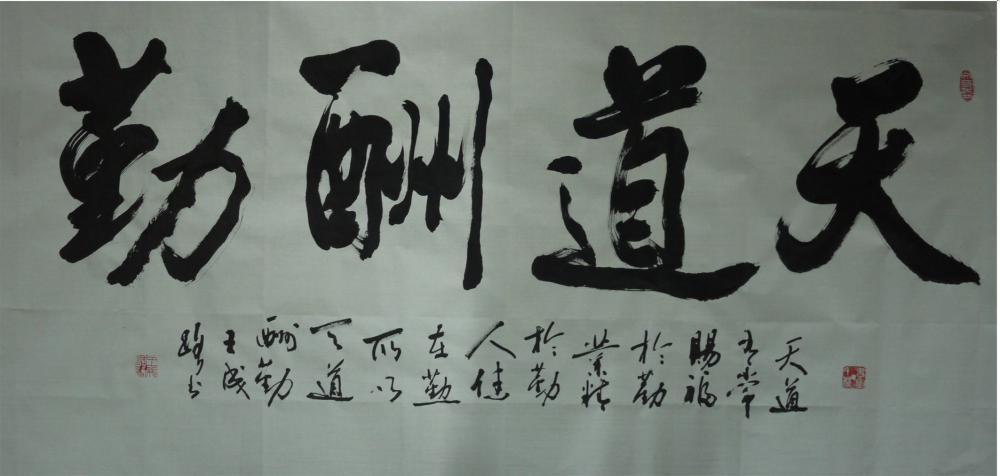 天道酬勤
天道
有常
賜福
於勤
業精
於勤
人健
在勤
所以
天道
酬勤
王
书